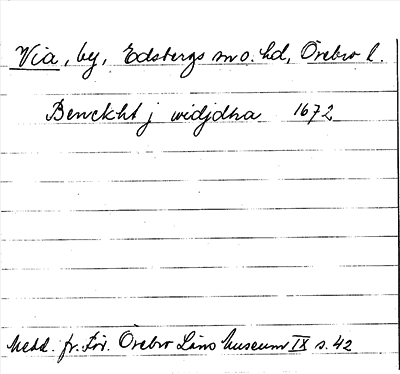 Via, by, Edsbergs sn o. hd, Örebro l.
Benckht j widjdha 1672
Medd. fr. För. Örebro Läns Museum IX s. 42